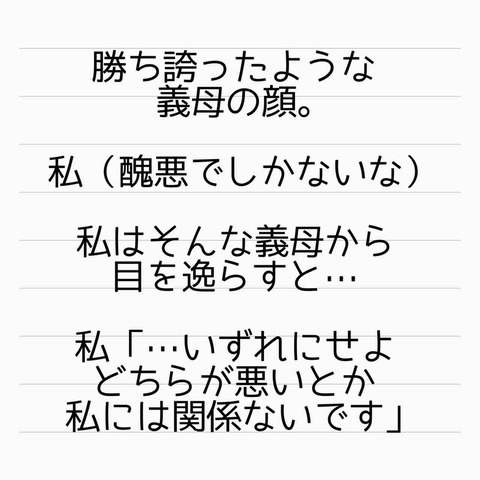 勝ち誇ったような
義母の顔。
私（醜悪でしかないな）
私はそんな義母から
目を逸らすと…
私「…いずれにせよ
どちらが悪いとか
私には関係ないです」